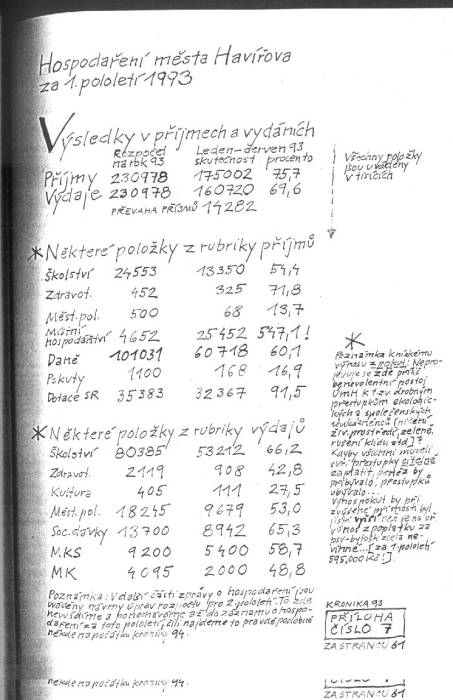 Hospodaření města Havířova
za 1. pololetí 1993
Výsledky v příjmech a vydáních
Rozpočet na rok 93 Leden-červen 93 skutečnost procento
Příjmy 230978 175002 75,7
Výdaje 230978 160720 69,6
PŘEVAHA PŘÍJMŮ 14282
Všechny položky
jsou uváděny
v tisících
* Některé položky z rubriky příjmů
Školství 24553 13350 54,4
Zdravot. 452 325 71,8
Měst. pol. 500 68 13,7
Místní hospodářství 4652 25452 547,1!
Daně 101031 60718 60,1
Pokuty 1100 168 16,9
Dotace SR 35383 32367 91,5
* Některé položky z rubriky výdajů
Školství 80385 53212 66,2
Zdravot. 2119 908 42,8
Kultura 405 111 27,5
Měst. pol. 18245 9679 53,0
Soc. dávky 13700 8942 65,3
MKS 9200 5400 58,7
MK 4095 2000 48,8
Poznámka: V další části zprávy o hospodaření jsou
uváděny návrhy úprav rozpočtu pro 2. pololetí. To zde
neuvádíme a ponecháváme až do záznamu o hospo-
daření za toto pololetí, čili najdeme to pravděpodobně
někde na počátku kroniky 94.
*
Poznámka k nízkému
výnosu z pokut: Nepro-
jevuje se zde příliš
benevolentní postoj
ÚMH k t.zv. drobným
přestupkům ekologic-
kých a společenských
(ničení
živ. prostředí, zeleně,
rušení klidu atd.)?
Kdyby všichni museli
své přestupky
zaplatit, peněz by
přibývalo, přestupků
ubývalo...
Výnos pokut by při
zvýšené přísnosti byl
jistě vyšší než je na př.
výnos z poplatku za
psy - bytosti zcela ne-
vinné... [za 1. pololetí
595,000 Kč!]
KRONIKA 93
PŘÍLOHA
ČÍSLO 7
ZA STRANOU 61
někde na počátku kroniky 94.
ČÍSLO 7
ZA STRANOU 61